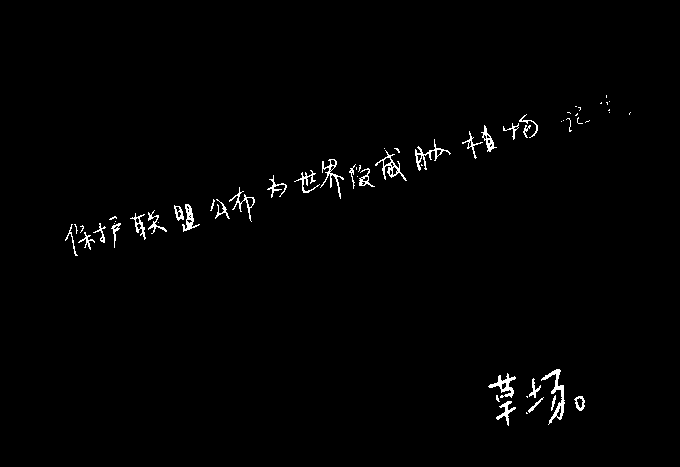 保护联盟公布为世界受威胁植物
草场。